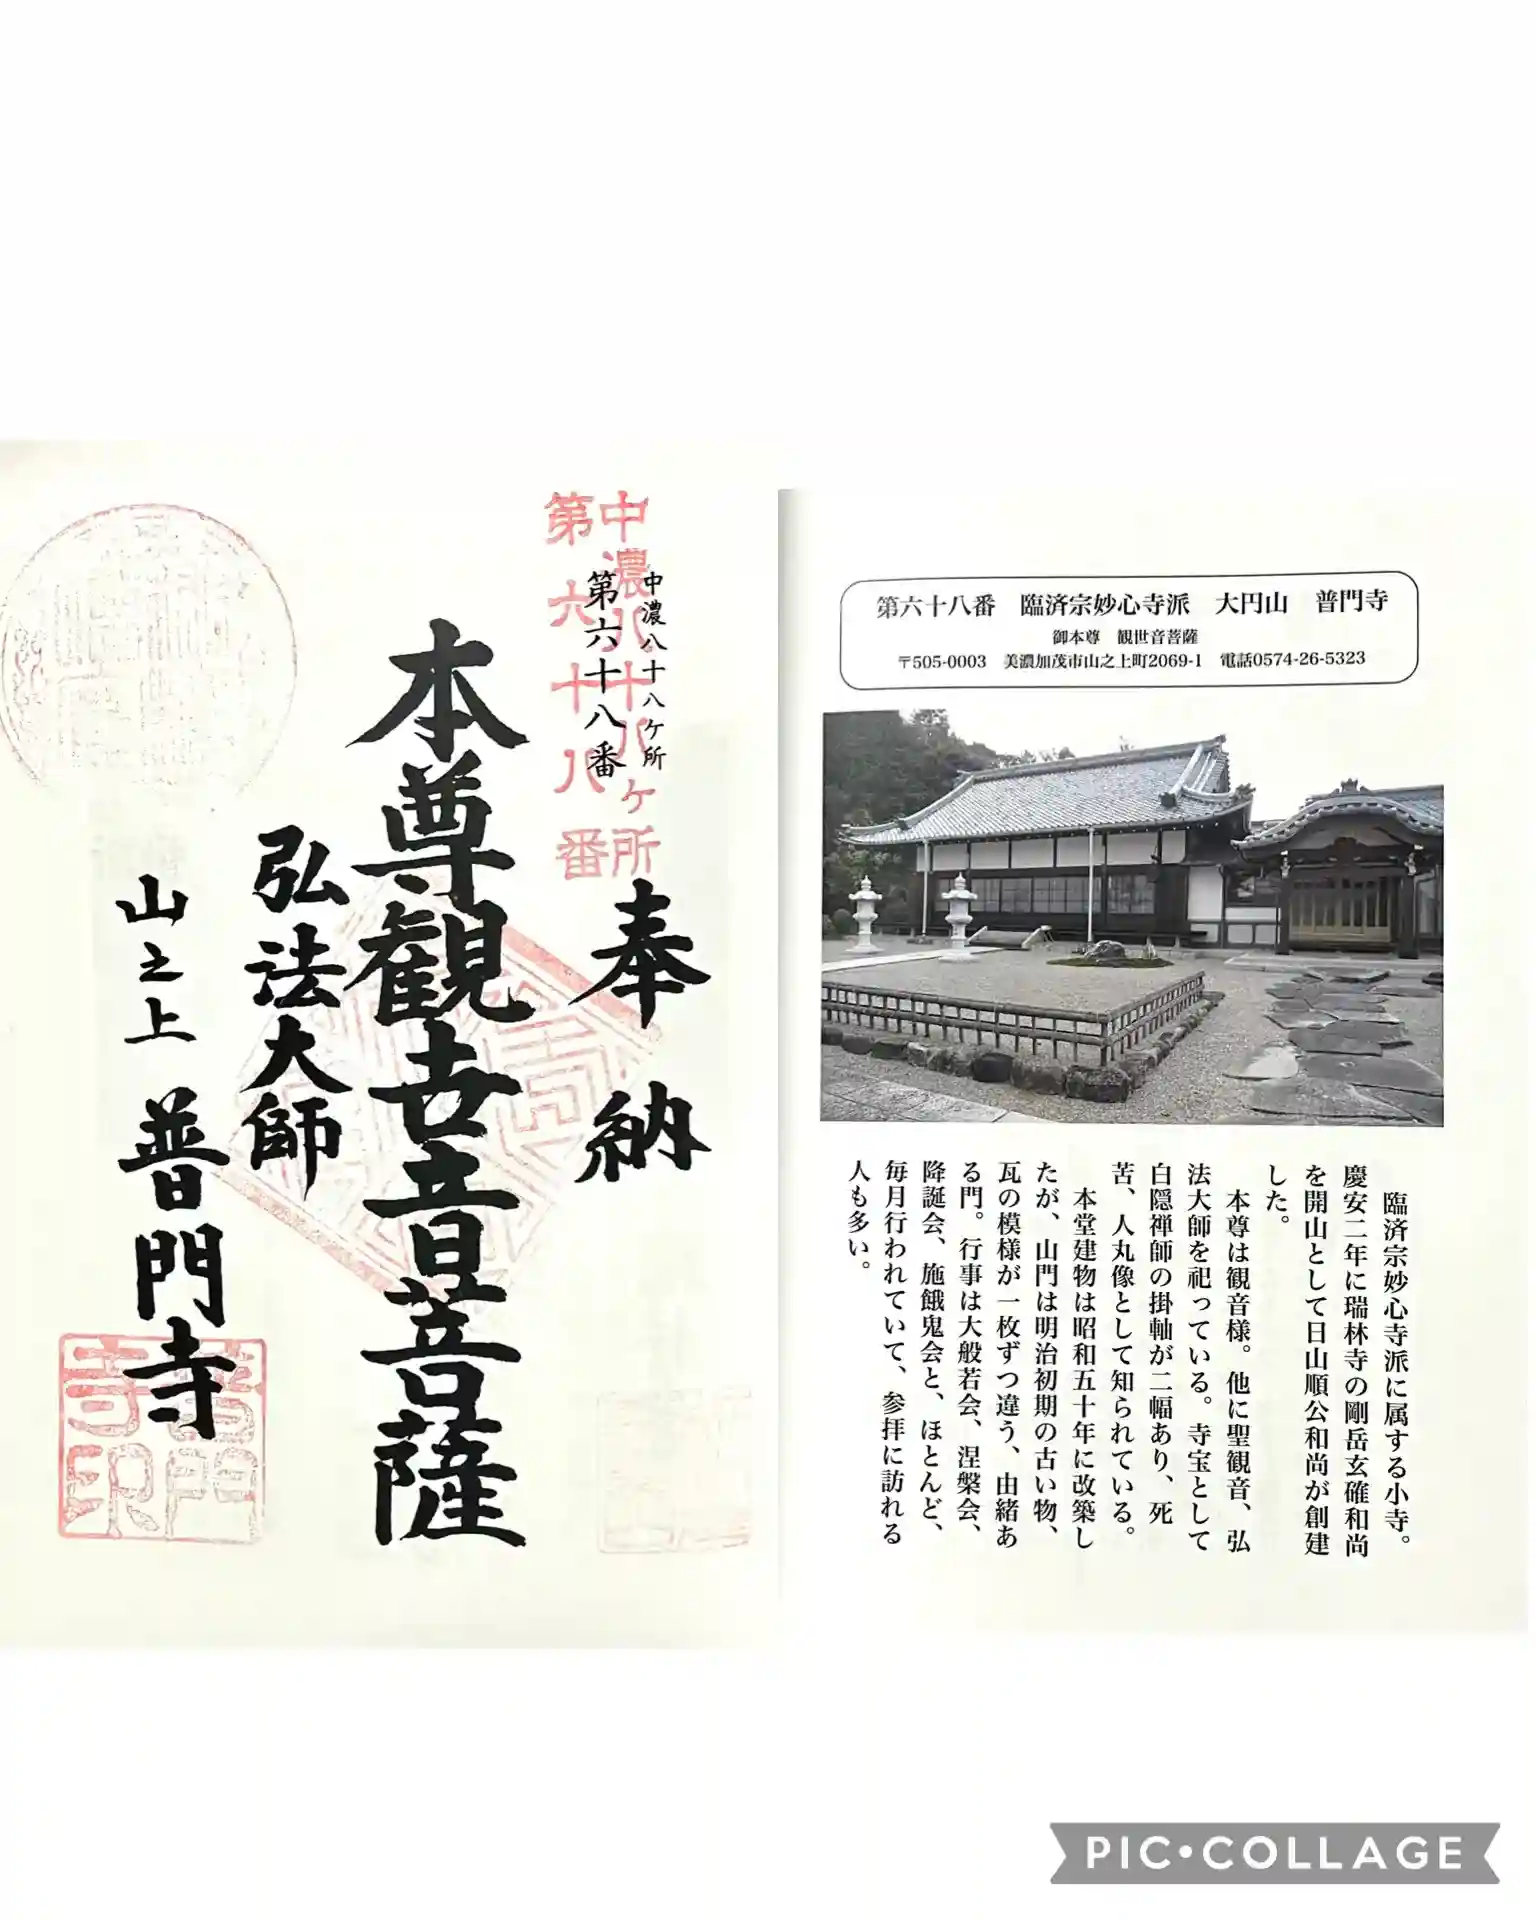 中濃八十八ヶ所
第六十八番
中濃八十八ヶ所
第六十八番
奉納
本尊観世音菩薩
弘法大師
山之上 普門寺
普門寺印
第六十八番 臨済宗妙心寺派 大円山 普門寺
御本尊 観世音菩薩
〒505-0003 美濃加茂市山之上町2069-1 電話0574-26-5323
臨済宗妙心寺派に属する小寺。
慶安二年に瑞林寺の剛岳玄確和尚
を開山として日山順公和尚が創建
した。
本尊は観音様。他に聖観音、弘
法大師を祀っている。寺宝として
白隠禅師の掛軸が二幅あり、死
苦、人丸像として知られている。
本堂建物は昭和五十年に改築し
たが、山門は明治初期の古い物、
瓦の模様が一枚ずつ違う、由緒あ
る門。行事は大般若会、涅槃会、
降誕会、施餓鬼会と、ほとんど、
毎月行われていて、参拝に訪れる
人も多い。
PIC•COLLAGE